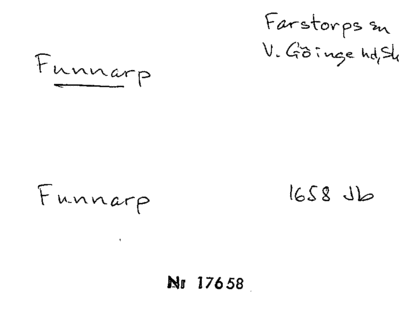 Farstorps sn
Funnarp V. Göinge hd, Sk
Funnarp 1658 Jb
Nr 17658